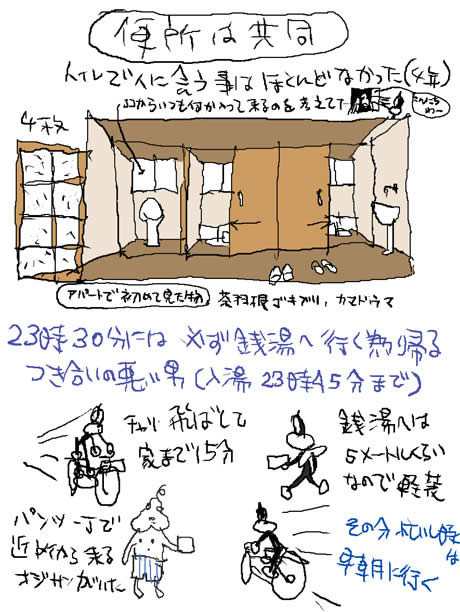 便所は共同
トイレで人に会う事はほとんどなかった(4年)
ココからいつも何か入って来るのを考えてた
こんにちわー
4枚
アパートで初めて見た物
茶羽根ゴキブリ、カマドウマ
23時30分には必ず銭湯へ行く為帰る
つき合いの悪い男(入湯23時45分まで)
チャリ飛ばして
家まで15分
銭湯へは
5メートルくらい
なので軽装
パンツ一丁で
近所から来る
オジサンがいた
その分忙しい時は
早朝に行く